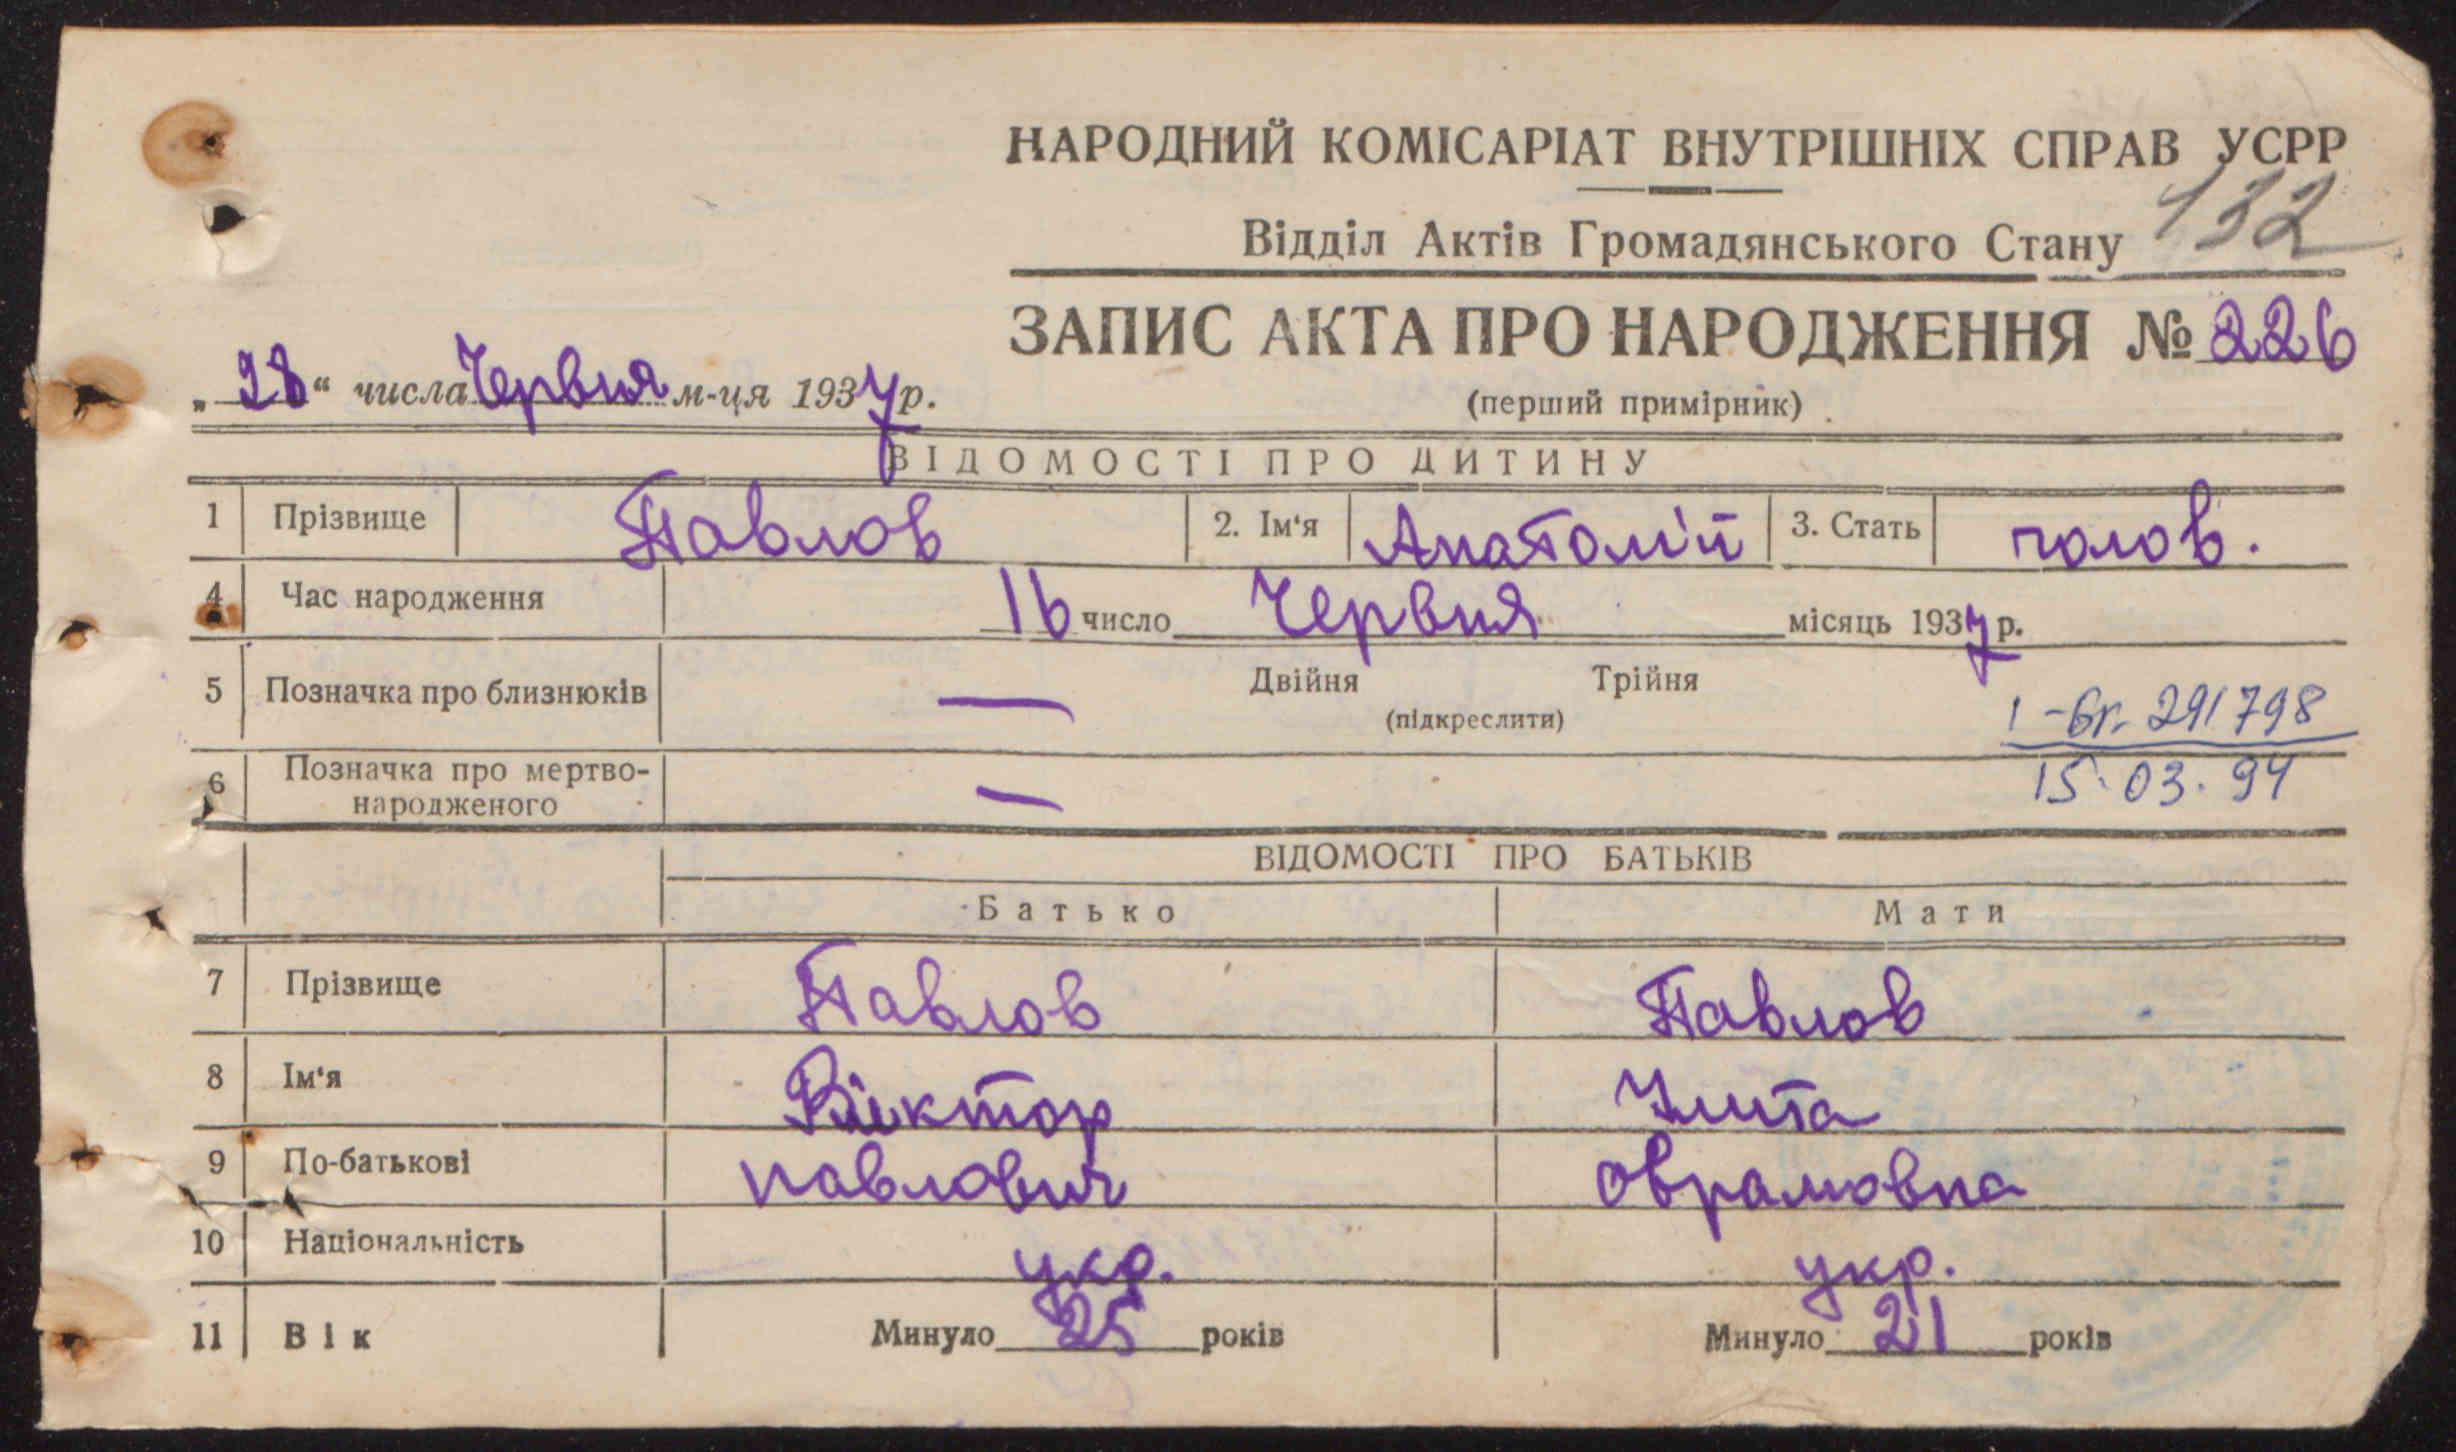 НАРОДНИЙ КОМІСАРІАТ ВНУТРІШНІХ СПРАВ УСРР
132
Відділ Актів Громадянського Стану
ЗАПИС АКТА ПРО НАРОДЖЕННЯ № 226
„28“ числа Червня м-ця 1937 р.
(перший примірник)
ВІДОМОСТІ ПРО ДИТИНУ
1 Прізвище Павлов 2. Ім‘я Анатолій 3. Стать чолов.
4 Час народження 16 число Червня місяць 1937 р.
5 Позначка про близнюків — Двійня Трійня
(підкреслити)
І-бк 291798
15.03.94
6 Позначка про мертво-
народженого —
ВІДОМОСТІ ПРО БАТЬКІВ
Батько Мати
7 Прізвище Павлов Павлов
8 Ім‘я Віктор
9 По-батькові павлович Оврамовна
10 Національність укр. укр.
11 Вік Минуло 25 років Минуло 21 років